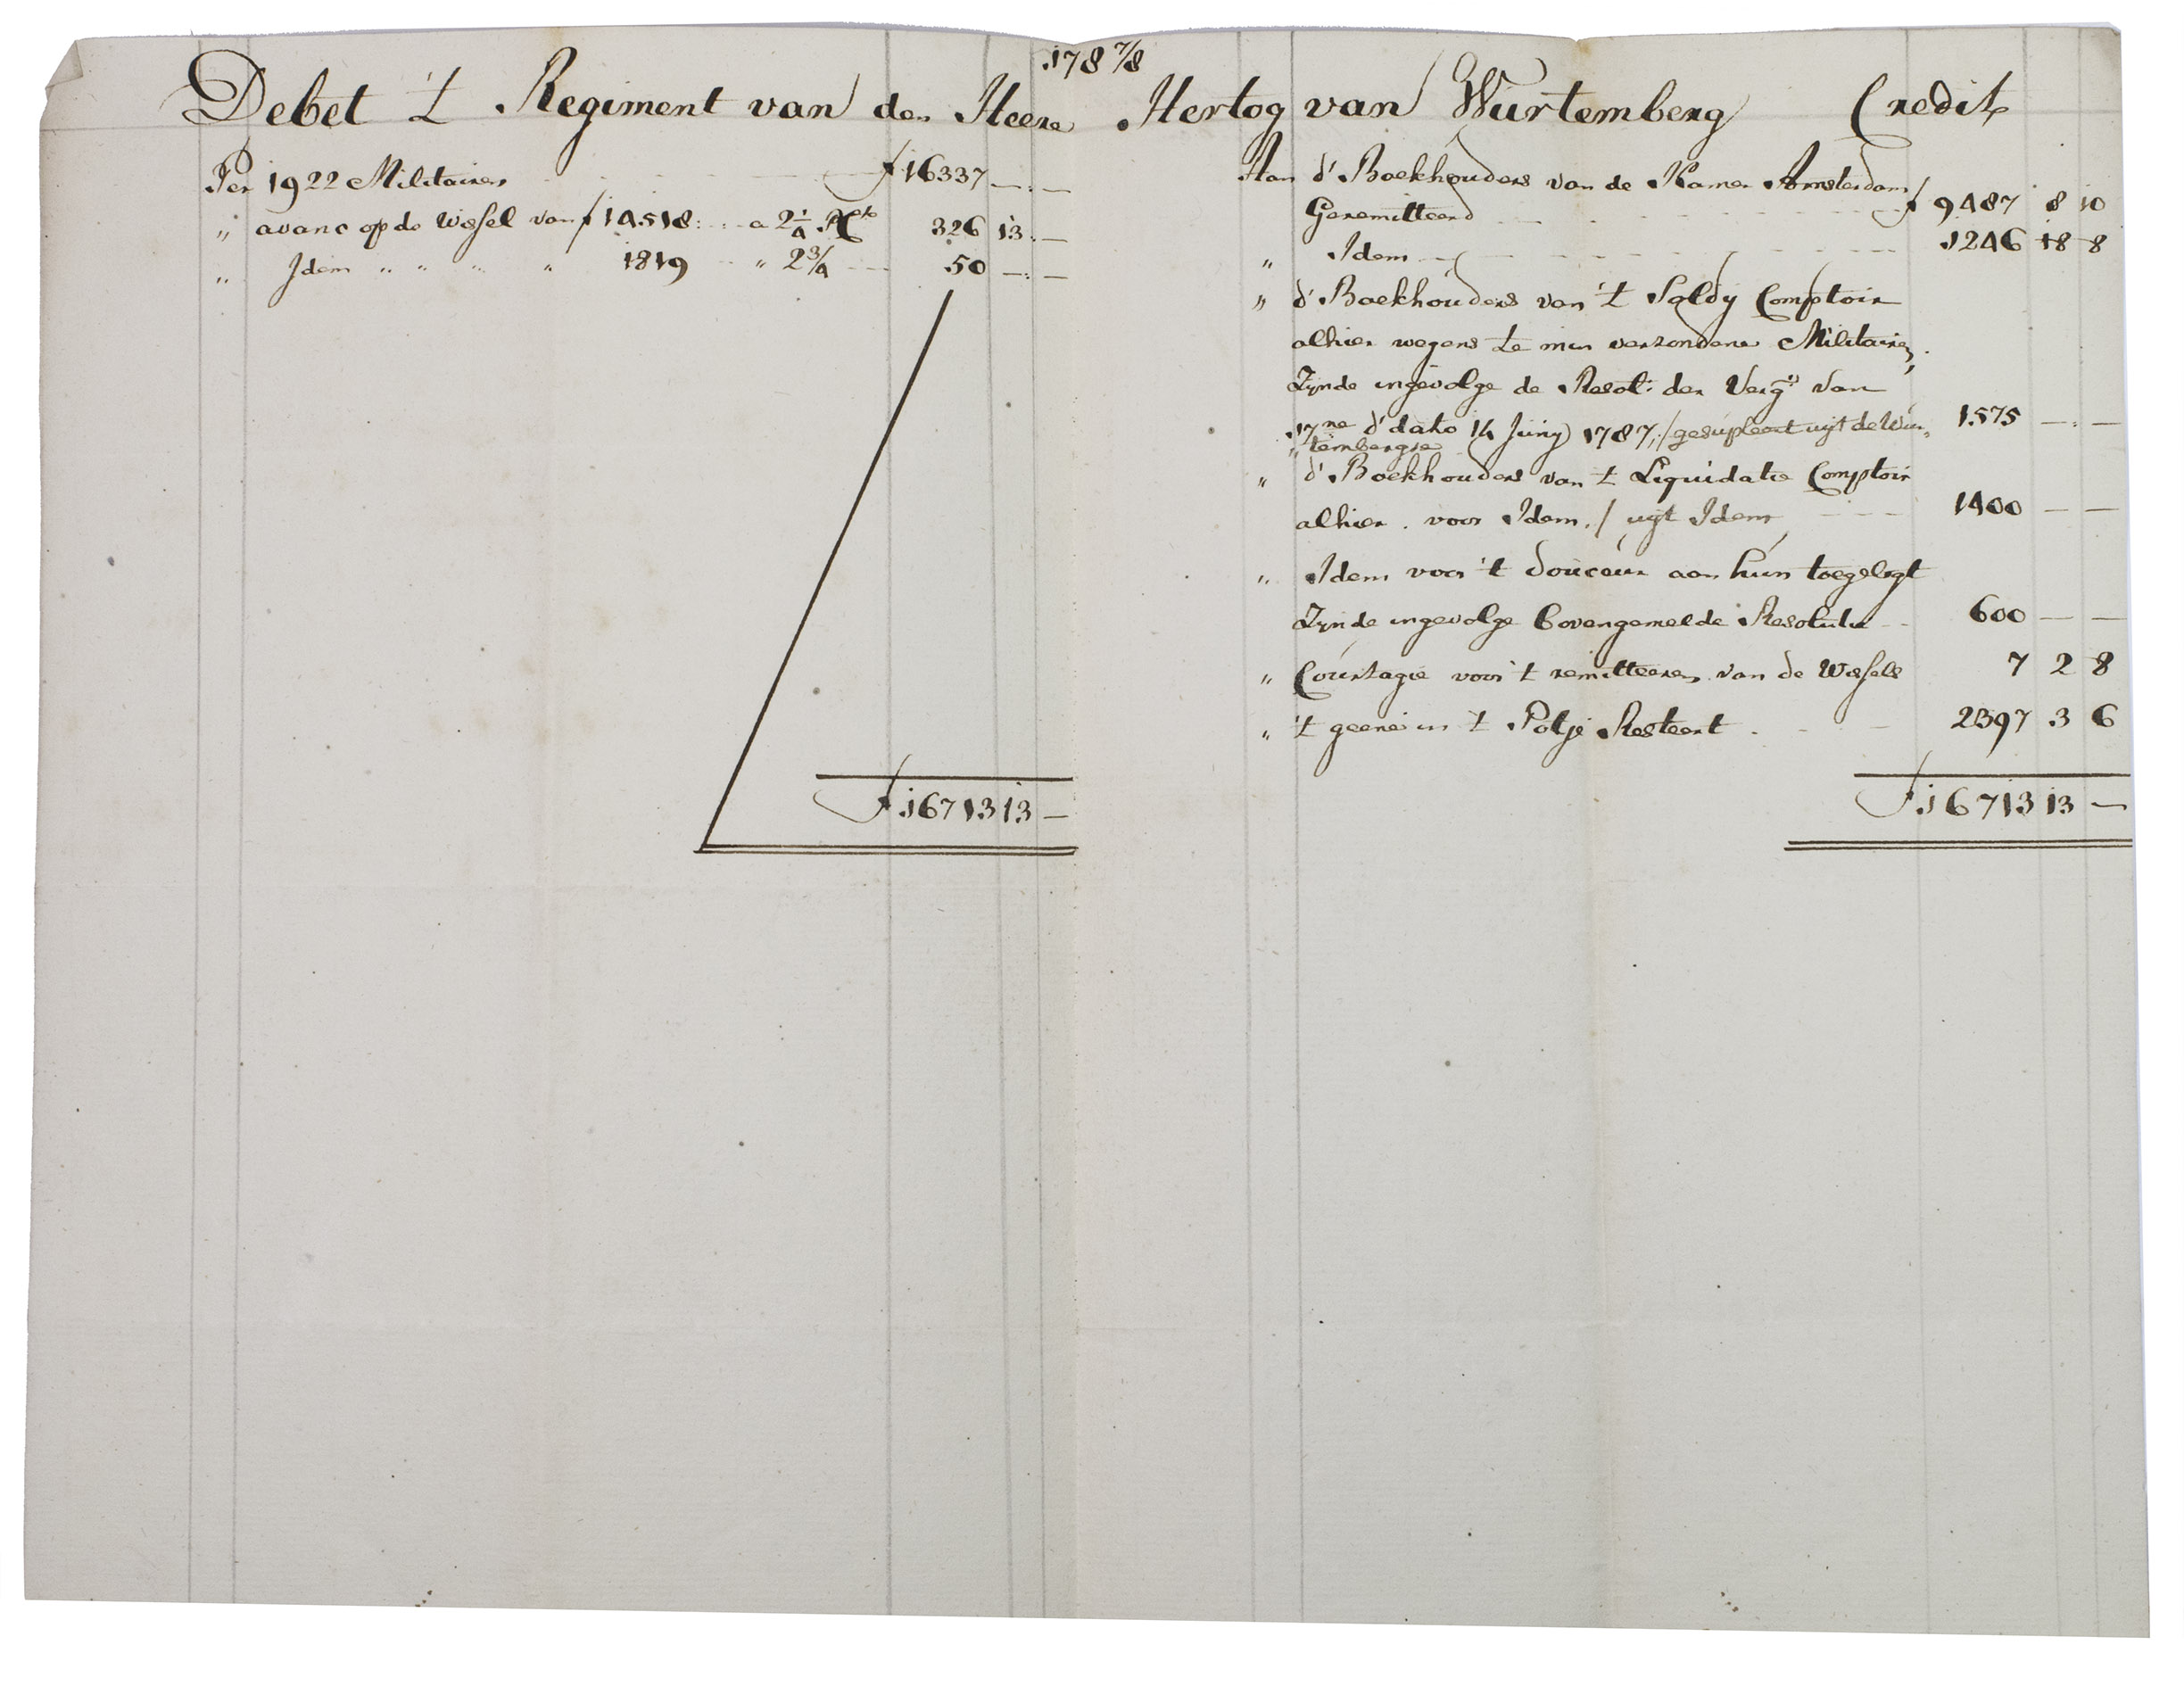 178 7/8
Debet 't Regiment van den Heere Hertog van Wurtemberg Credit
Per 1922 Militairen f 16337 — : —
" avanc op de Wissel van f 14518 : a 2 1/4 PCto 326 13 : —
" Idem " " " " 1819 " 2 3/4 50 — : —
f 16713 13 —
Aan d' Boekhouders van de Kamer Amsterdam
Geremitteerd f 9487 8 10
" Idem 1246 18 8
" d' Boekhouders van 't Soldy Comptoir
alhier wegens te min verzondene Militairen,
Zijnde ingevolge de Resol: der Verg: van
17ne d' dato 14 Junij 1787, / gesupleert uijt de Wur- 1575 — : —
" tembergse
" d' Boekhouders van 't Liquidatie Comptoir
alhier voor Idem / uijt Idem 1400 — —
" Idem voor 't douceur aan hun toegelegt
Zijnde ingevolge bovengemelde Resolutie 600 — —
" Courtagie voor 't remitteeren van de Wissels 7 2 8
" 't geene in 't Potje Resteert 2397 3 6
f 16713 13 —